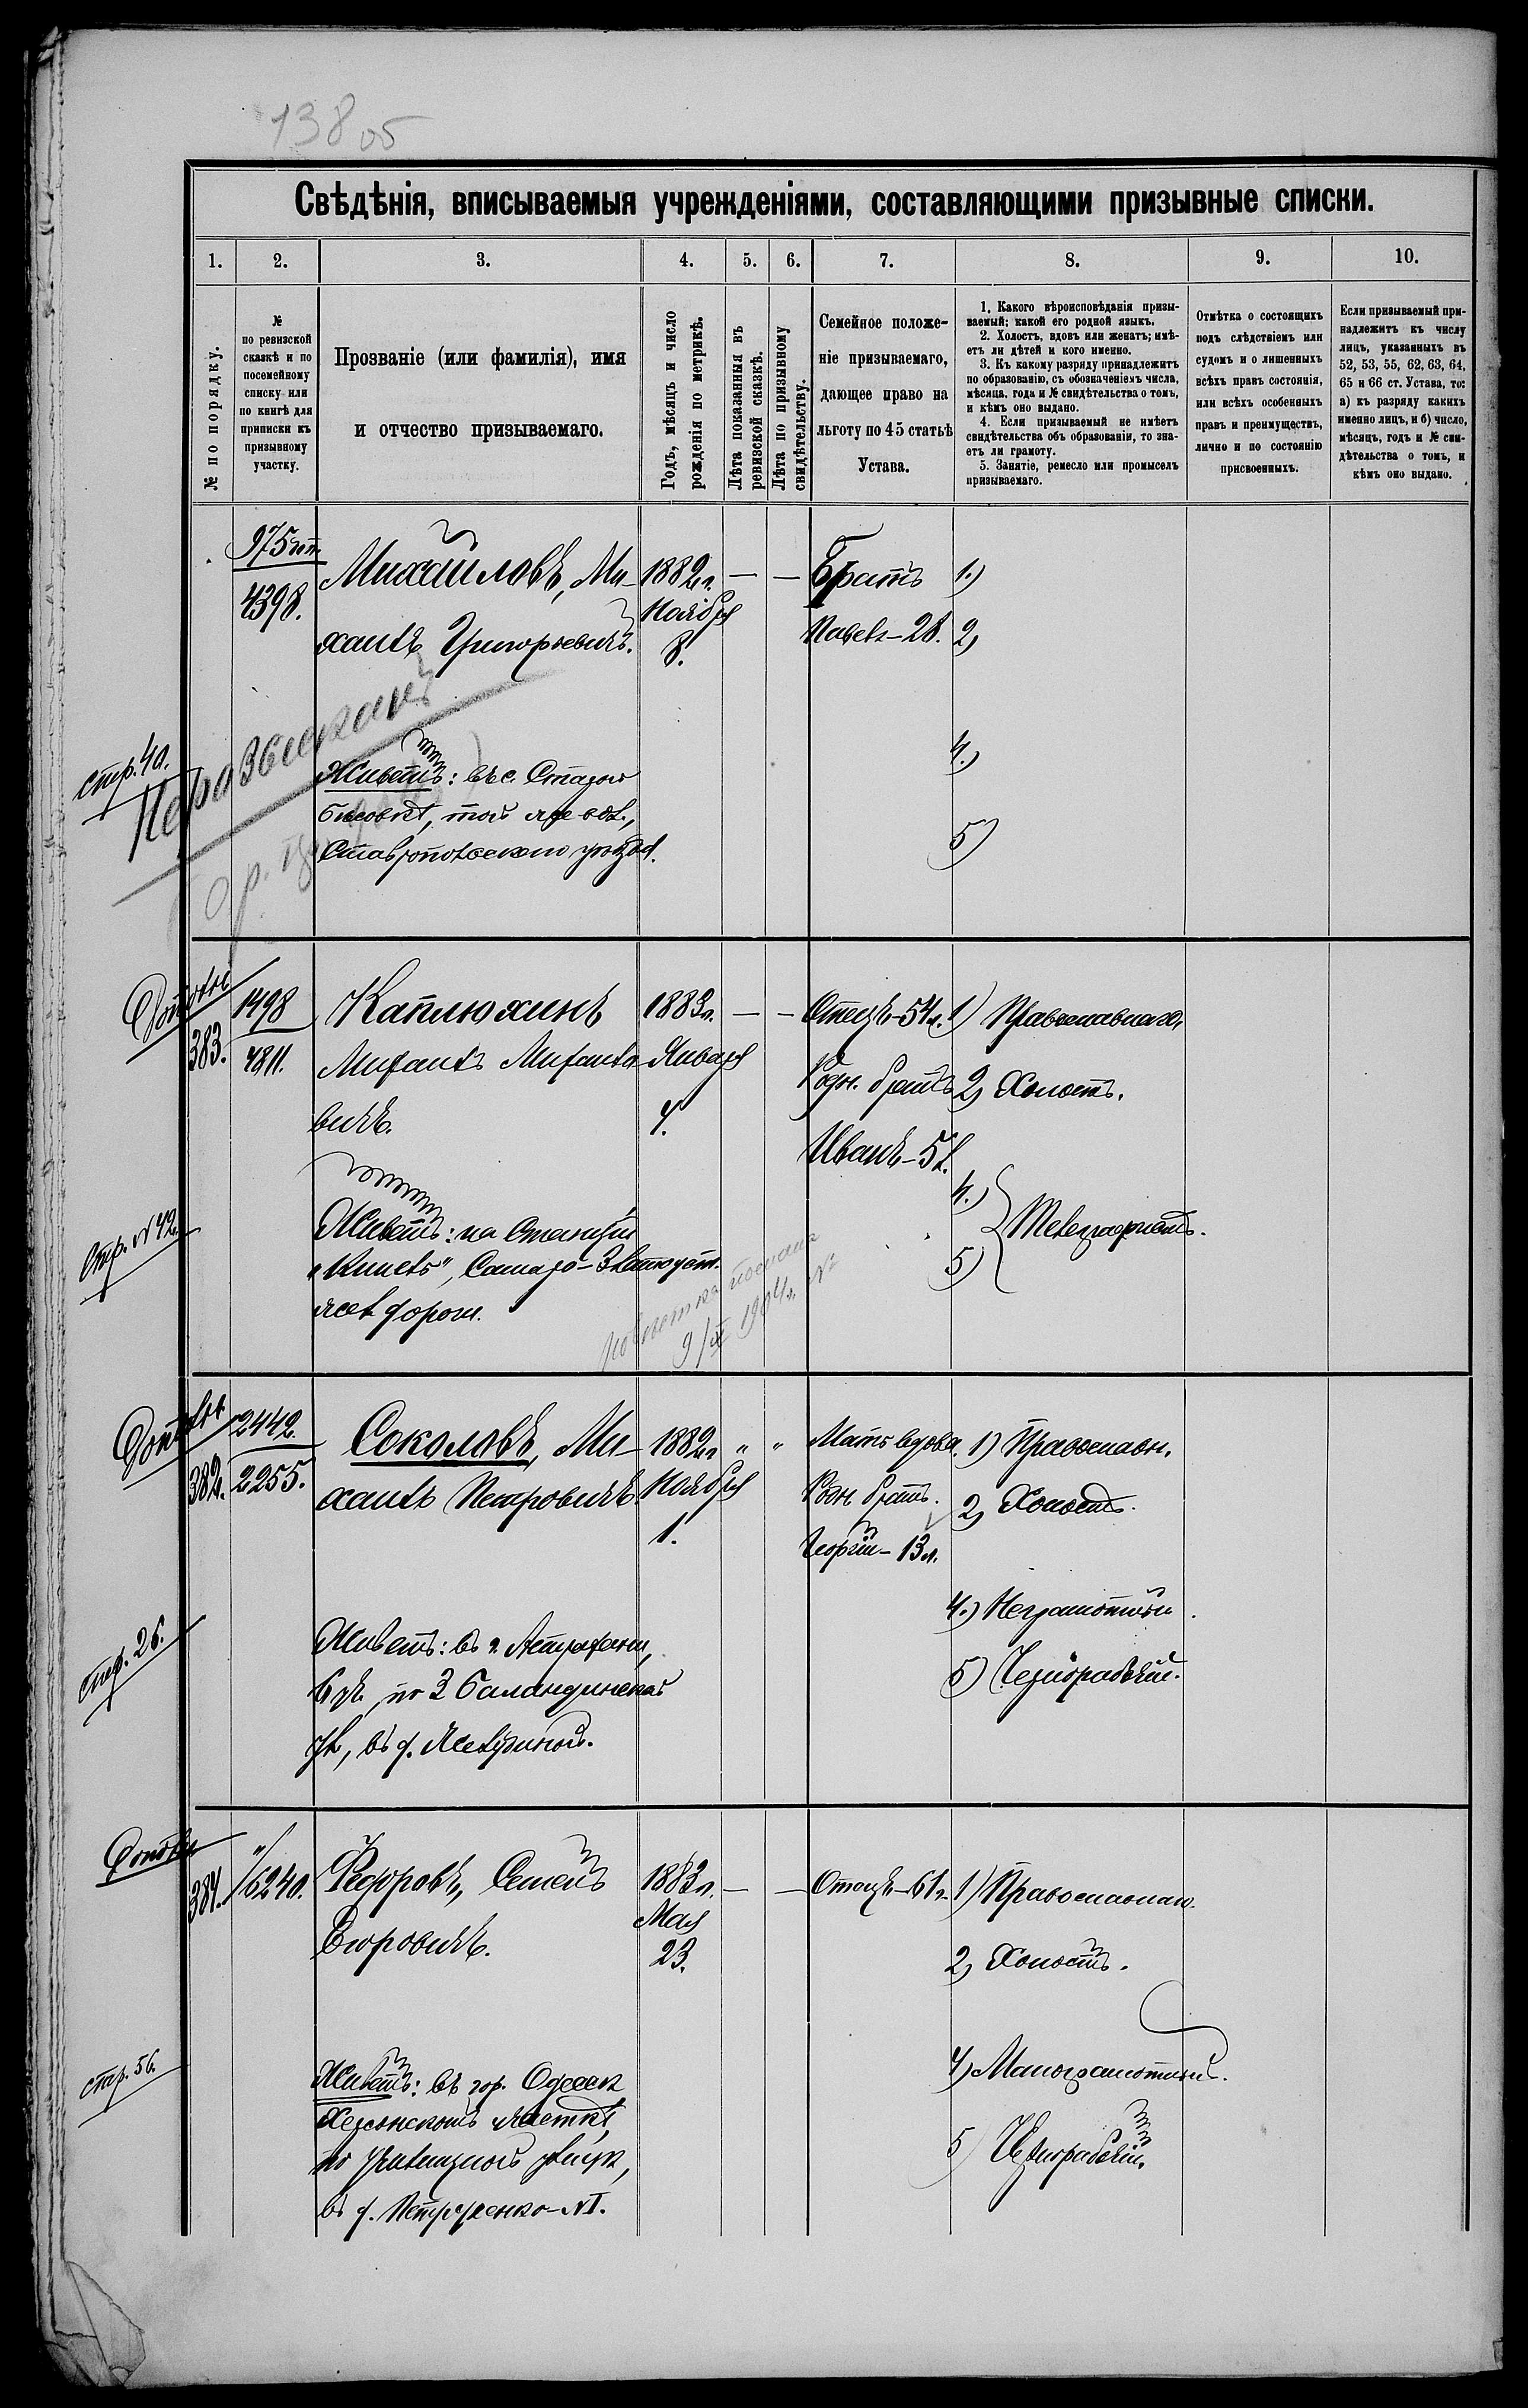 138 об
Свѣдѣнія, вписываемыя учрежденіями, составляющими призывные списки.
1. 2. 3. 4. 5. 6. 7. 8. 9. 10.
№ по порядку.
№
по ревизской
сказкѣ и по
посемейному
списку или
по книгѣ для
приписки къ
призывному
участку.
Прозваніе (или фамилія), имя
и отчество призываемаго.
Годъ, мѣсяцъ и число
рожденія по метрикѣ.
Лѣта показанныя въ
ревизской сказкѣ.
Лѣта по призывному
свидѣтельству.
Семейное положе-
ніе призываемаго,
дающее право на
льготу по 45 статьѣ
Устава.
1. Какого вѣроисповѣданія призы-
ваемый; какой его родной языкъ.
2. Холостъ, вдовъ или женатъ; имѣ-
етъ ли дѣтей и кого именно.
3. Къ какому разряду принадлежитъ
по образованію, съ обозначеніемъ числа,
мѣсяца, года и № свидѣтельства о томъ,
и кѣмъ оно выдано.
4. Если призываемый не имѣетъ
свидѣтельства объ образованіи, то зна-
етъ ли грамоту.
5. Занятіе, ремесло или промыселъ
призываемаго.
Отмѣтка о состоящихъ
подъ слѣдствіемъ или
судомъ и о лишенныхъ
всѣхъ правъ состоянія,
или всѣхъ особенныхъ
правъ и преимуществъ,
лично и по состоянію
присвоенныхъ.
Если призываемый при-
надлежитъ къ числу
лицъ, указанныхъ въ
52, 53, 55, 62, 63, 64,
65 и 66 ст. Устава, то:
а) къ разряду какихъ
именно лицъ, и б) число,
мѣсяцъ, годъ и № сви-
дѣтельства о томъ, и
кѣмъ оно выдано.
975
4398.
Михайловъ, Ми-
хаилъ Григорьевичъ.
1882 г.
Ноября
8.
— —
Братъ
Павелъ - 28.
1.)
2)
4.)
5)
стр. 40.
Неразысканъ
Живетъ: въ с. Старой
Бѣсовкѣ, той же вол.,
Ставропольскаго уѣзда.
Дополн
383.
1498
4811.
Каплюхинъ
Михаилъ Михайло-
вичъ.
1883 г.
Января
4.
— —
Отецъ - 54 л.
Родн. братъ
Иванъ - 5 л.
1) Православнаго,
2) Холостъ.
4.)
5) Телеграфистъ.
Стр. № 42
Живетъ: на Станціи
„Кинель", Самаро-Златоуст.
жел. дороги.
повѣстка послана
9/IX 1904 г. №
Дополн
382.
2442
2255.
Соколовъ, Ми-
хаилъ Петровичъ
1882 г.
Ноября
1.
" "
Мать вдова.
Родн. братъ.
Георгій - 13 л.
1) Православн.
2) Холостъ.
4.) Неграмотный
5) Чернорабочій.
стр. 26.
Живетъ: въ г. Астрахани,
6 уч., по 3 Баландинской
ул., въ д.
Дополн
384.
"/6240.
Федоровъ, Семенъ
Егоровичъ.
1883 г.
Мая
23.
— —
Отецъ - 61 г.
1) Православнаго.
2) Холостъ.
4) Малограмотный.
5) Чернорабочій.
стр. 56.
Живетъ: въ гор. Одессѣ
Херсонскомъ участкѣ,
по улицѣ,
въ д. Петруженко - № 1.